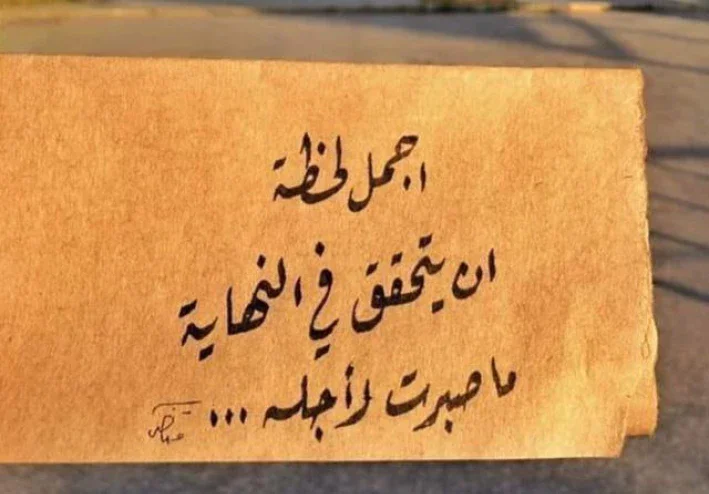 اجمل لحظة
ان يتحقق في النهاية
ما صبرت لأجله ...